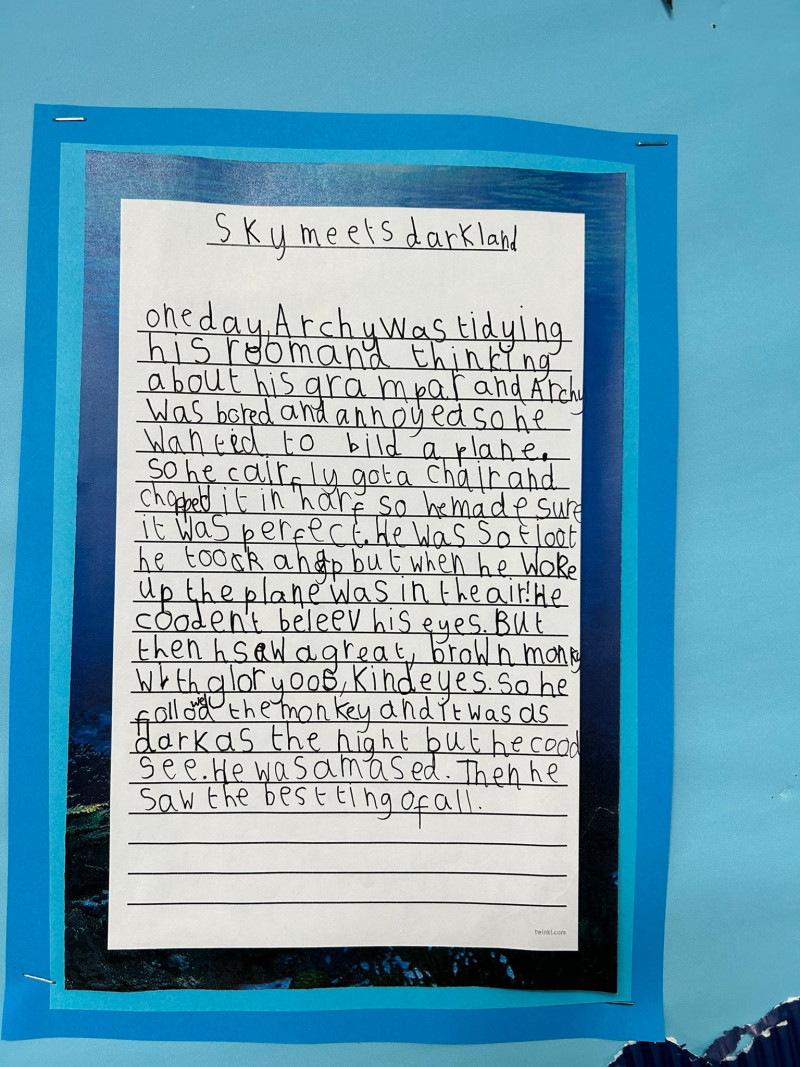 Sky meets darkland
one day, Archy was tidying
his room and thinking
about his grampar and Archy
was bored and annoyed so he
wanted to bild a plane.
So he cairfly got a chair and
chopped it in harf so he made sure
it was perfect. He was so
he toock a nap but when he woke
up the plane was in the air! He
coodent beleev his eyes. But
then h saw a great, brown monky
with gloryoos, kind eyes. So he
followed the monkey and it was as
dark as the night but he cood
see. He was amased. Then he
saw the best ting of all.
twinkl.com